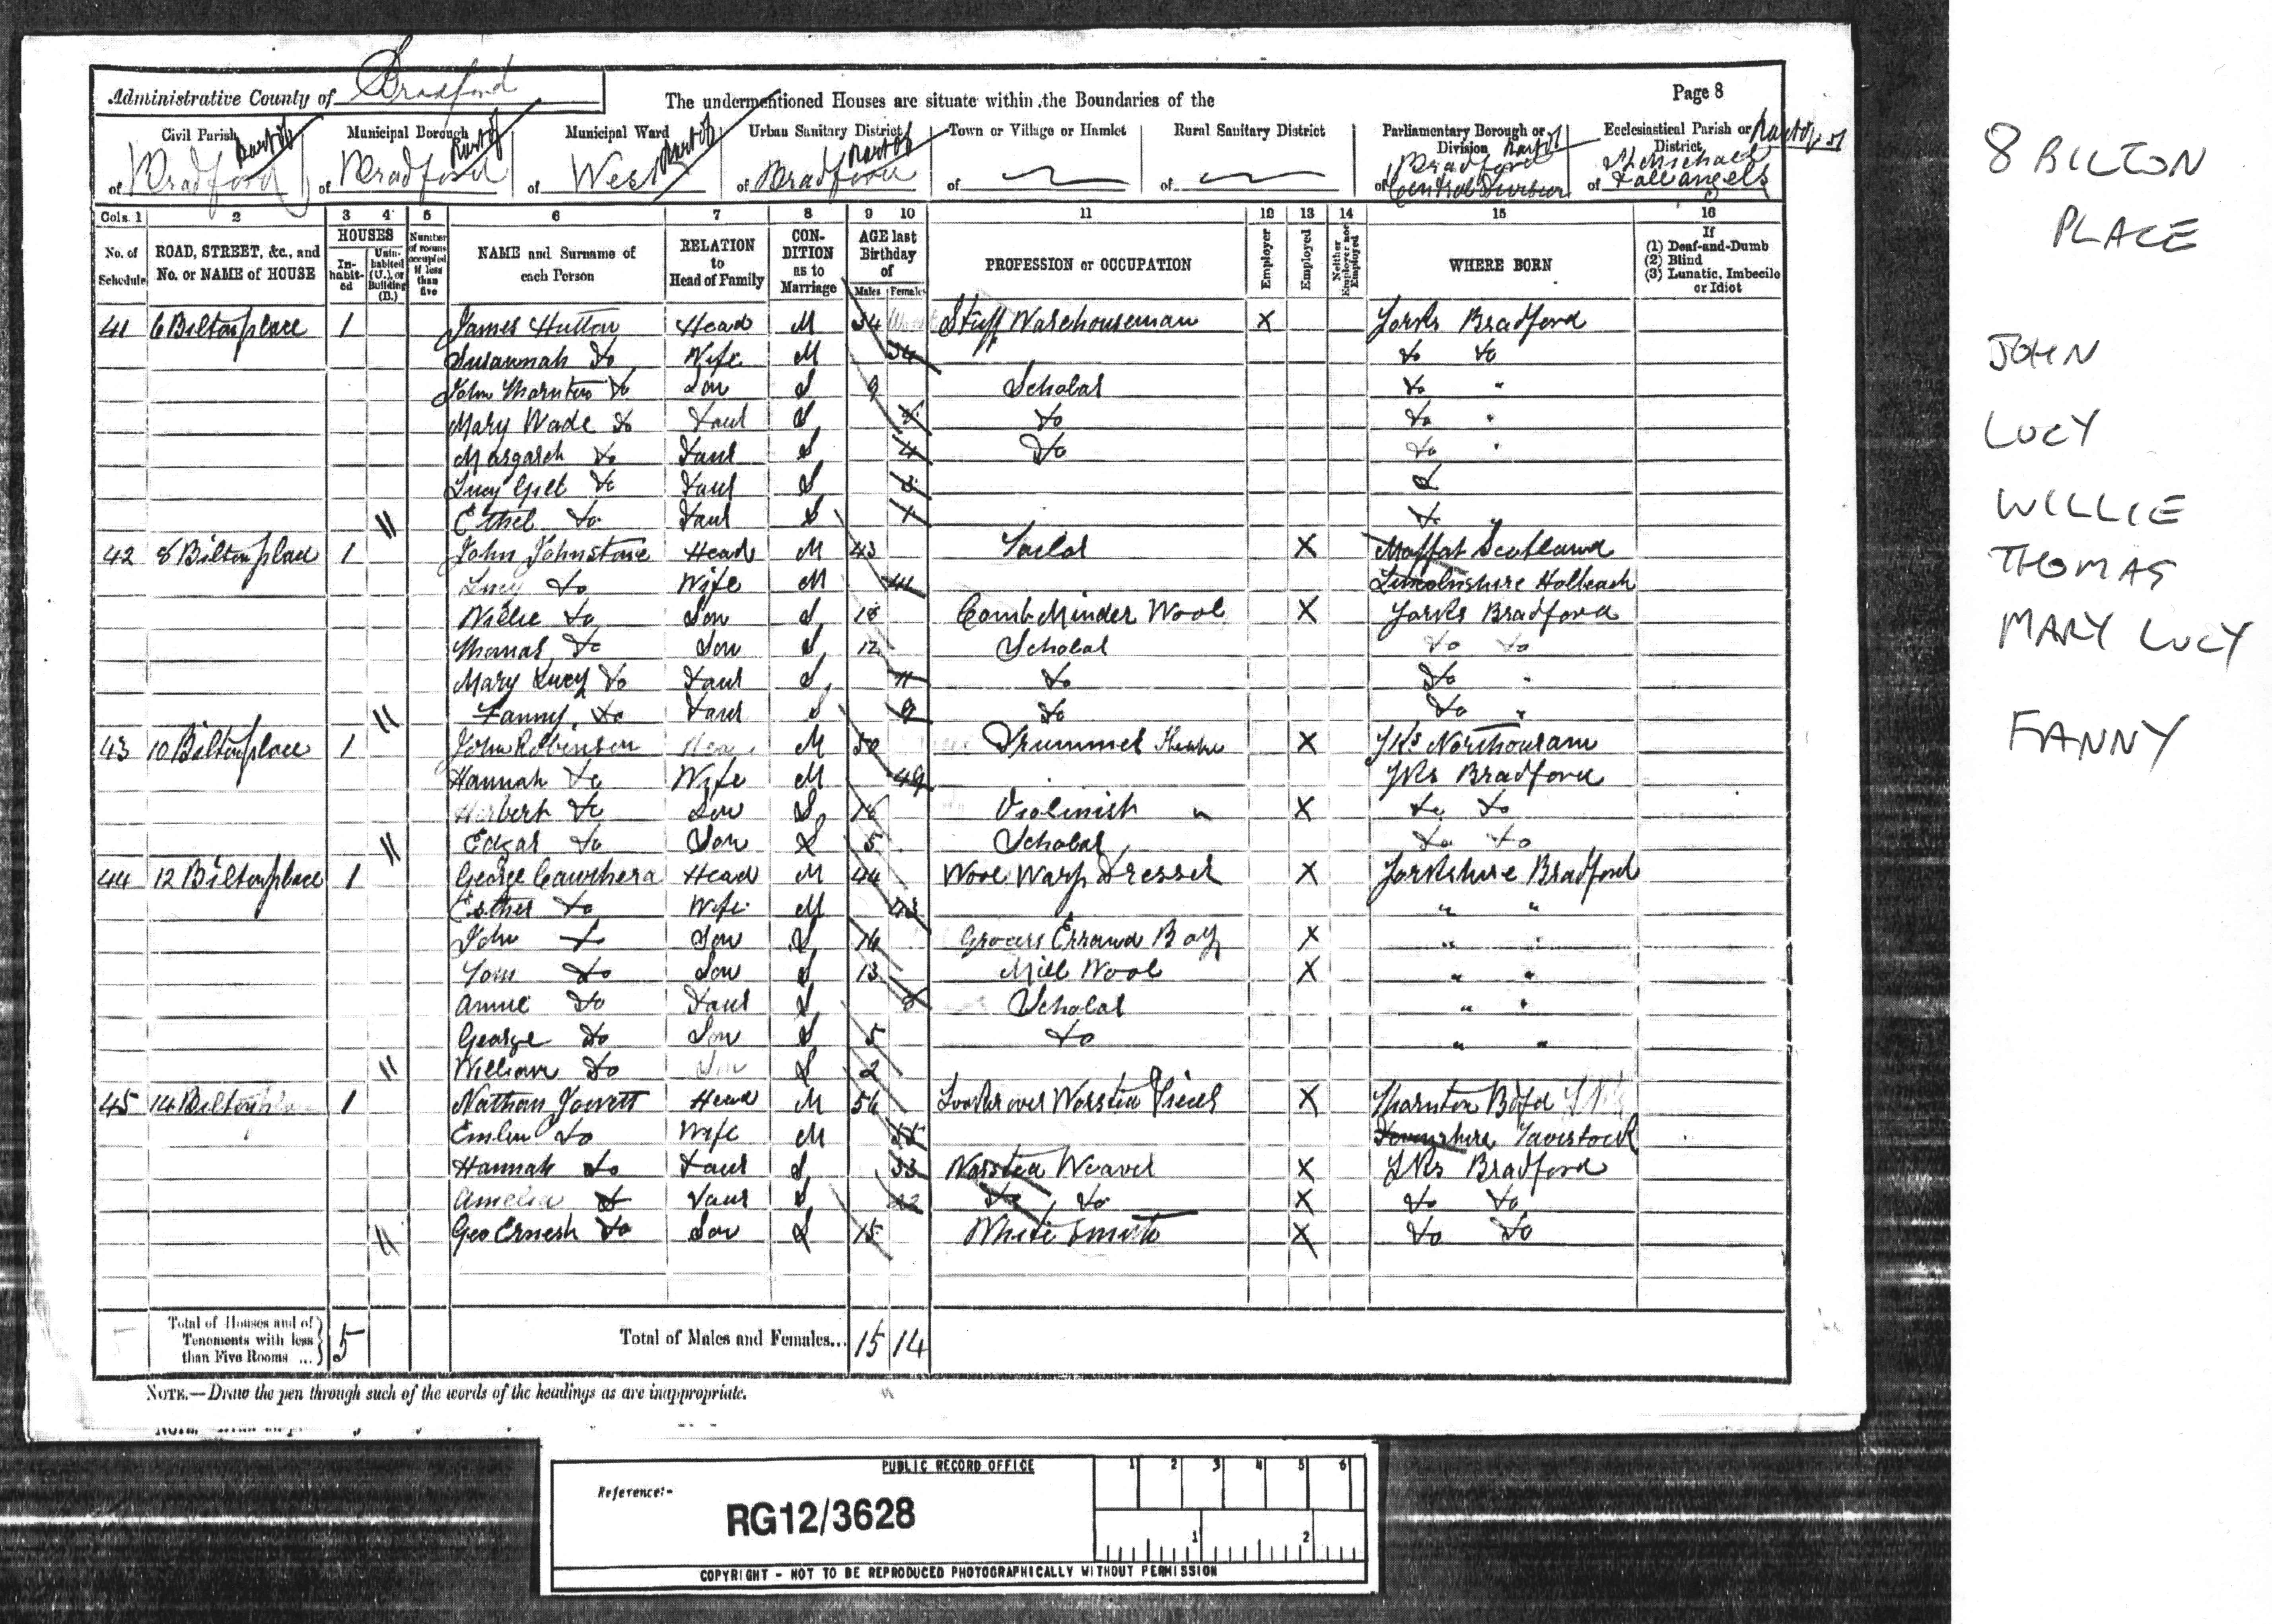 Administrative County of Bradford
The undermentioned Houses are situate within the Boundaries of the
Page 8
Civil Parish
Municipal Borough
Municipal Ward
Urban Sanitary District
Town or Village or Hamlet
Rural Sanitary District
Parliamentary Borough or Division
Ecclesiastical Parish or District
Part of Part of Part of Part of Part of Part of
of Bradford of Bradford of West of Bradford of of of Bradford Central Division of St Michael & all angels
Cols. 1 2 3 4 5 6 7 8 9 10 11 12 13 14 15 16
No. of Schedule
ROAD, STREET, &c., and No. or NAME of HOUSE
HOUSES
In-habit-ed
Unin-habited (U.), or Building (B.)
Number of rooms occupied if less than five
NAME and Surname of each Person
RELATION to Head of Family
CON-DITION as to Marriage
AGE last Birthday of
Males Females
PROFESSION or OCCUPATION
Employer
Employed
Neither Employer nor Employed
WHERE BORN
If
(1) Deaf-and-Dumb
(2) Blind
(3) Lunatic, Imbecile or Idiot
41 6 Bilton place 1 James Hutton Head M 34 Stuff Warehouseman X Yorks Bradford
Susannah Do Wife M 34 Do Do
John Thornton Do Son S 9 Scholar Do "
Mary Wade Do Daur S Do Do "
Margaret Do Daur S 4 Do Do "
Lucy Do Daur S
Ethel Do Daur S 1 Do
42 8 Bilton place 1 John Johnstone Head M 43 Tailor X Moffat Scotland
Lucy Do Wife M 44 Lincolnshire Holbeach
Willie Do Son S 18 Comb Minder Wool X Yorks Bradford
Thomas Do Son S 12 Scholar Do Do
Mary Lucy Do Daur S 11 Do Do "
Fanny Do Daur S 9 Do Do "
43 10 Bilton place 1 John Robinson Head M 50 Drummer Theatre X Yks Northowram
Hannah Do Wife M 49 Yks Bradford
Herbert Do Son S 18 Violinist " X Do Do
Edgar Do Son S 5 Scholar Do Do
44 12 Bilton place 1 George Cawthera Head M 44 Wool Warp Dresser X Yorkshire Bradford
Esther Do Wife M 43 " "
John Do Son S 16 Grocers Errand Boy X " "
Tom Do Son S 13 Mill Wool X " "
Annie Do Daur S 8 Scholar " "
George Do Son S 5 Do " "
William Do Son S 2
45 14 Bilton place 1 Nathan Jowett Head M 56 Looker over Worsted Pieces X Thornton Bdfd
Emlin Do Wife M 55 Devonshire Tavistock
Hannah Do Daur S 33 Worsted Weaver X Yks Bradford
Amelia Do Daur S 22 Do Do X Do Do
Geo Ernest Do Son S 15 White Smith X Do Do
Total of Houses and of Tenements with less than Five Rooms ... 5
Total of Males and Females... 15 14
NOTE.—Draw the pen through such of the words of the headings as are inappropriate.
PUBLIC RECORD OFFICE
Reference:-
RG12/3628
1 2 3 4 5 6
1 2
COPYRIGHT - NOT TO BE REPRODUCED PHOTOGRAPHICALLY WITHOUT PERMISSION
8 BILTON
PLACE
JOHN
LUCY
WILLIE
THOMAS
MARY LUCY
FANNY